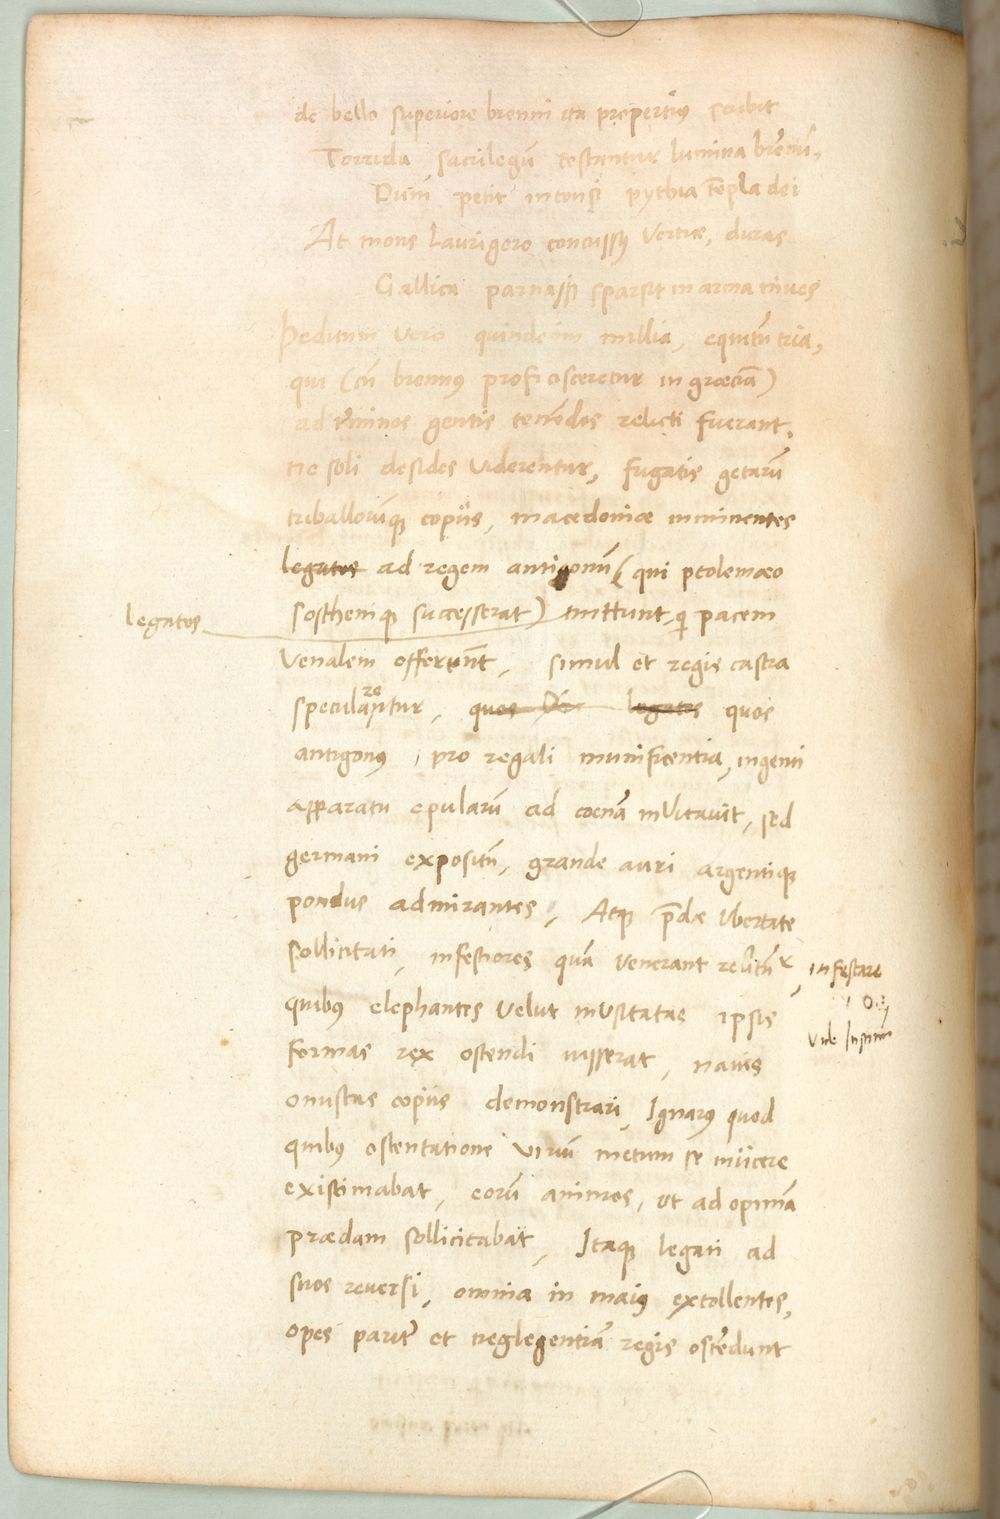 de bello superiore brenni ita propertiꝰ scribit
Torrida sacrilegũ testantur lumina brẽni,
Dum petit intonsi pythia tẽpla dei
At mons Laurigero concussꝰ vertice, duras
Gallica parnassi sparsit in arma nives
Peditum vero quindecim millia, equitũ tria,
qui (cũ brennus proficisceretur in græciã)
ad t̃minos gentis tenẽdos relicti fuerant,
ne soli desides viderentur, fugatis getarũ
triballorũqꝫ copiis, macedoniæ imminentes
legatos ad regem antigonũ (qui ptolemæo
legatos
Sosthemqꝫ successerat) mittunt, q̃ pacem
venalem offerũnt, simul et regis castra
speculãtur, re quos legatos quos
antigonꝰ, pro regali munificentia, ingenti
apparatu epularũ ad coenã invitavit, sed
germani expositũ, grande auri argentiqꝫ
pondus admirantes, Atqꝫ p̃dæ ubertate
sollicitati, infestiores quã venerant
infestare
quibꝰ elephantes velut inusitatas ipsis
formas rex ostendi iusserat, naves
onustas copiis demonstrari, Ignarꝰ quod
quibꝰ ostentatione viriũ metum se iniicere
existimabat, eorũ animos, ut ad opimã
prædam sollicitabat, Itaqꝫ legati ad
suos reversi, omnia in maiꝰ extollentes,
opes parit̃ et neglegentiã regis ostẽdunt